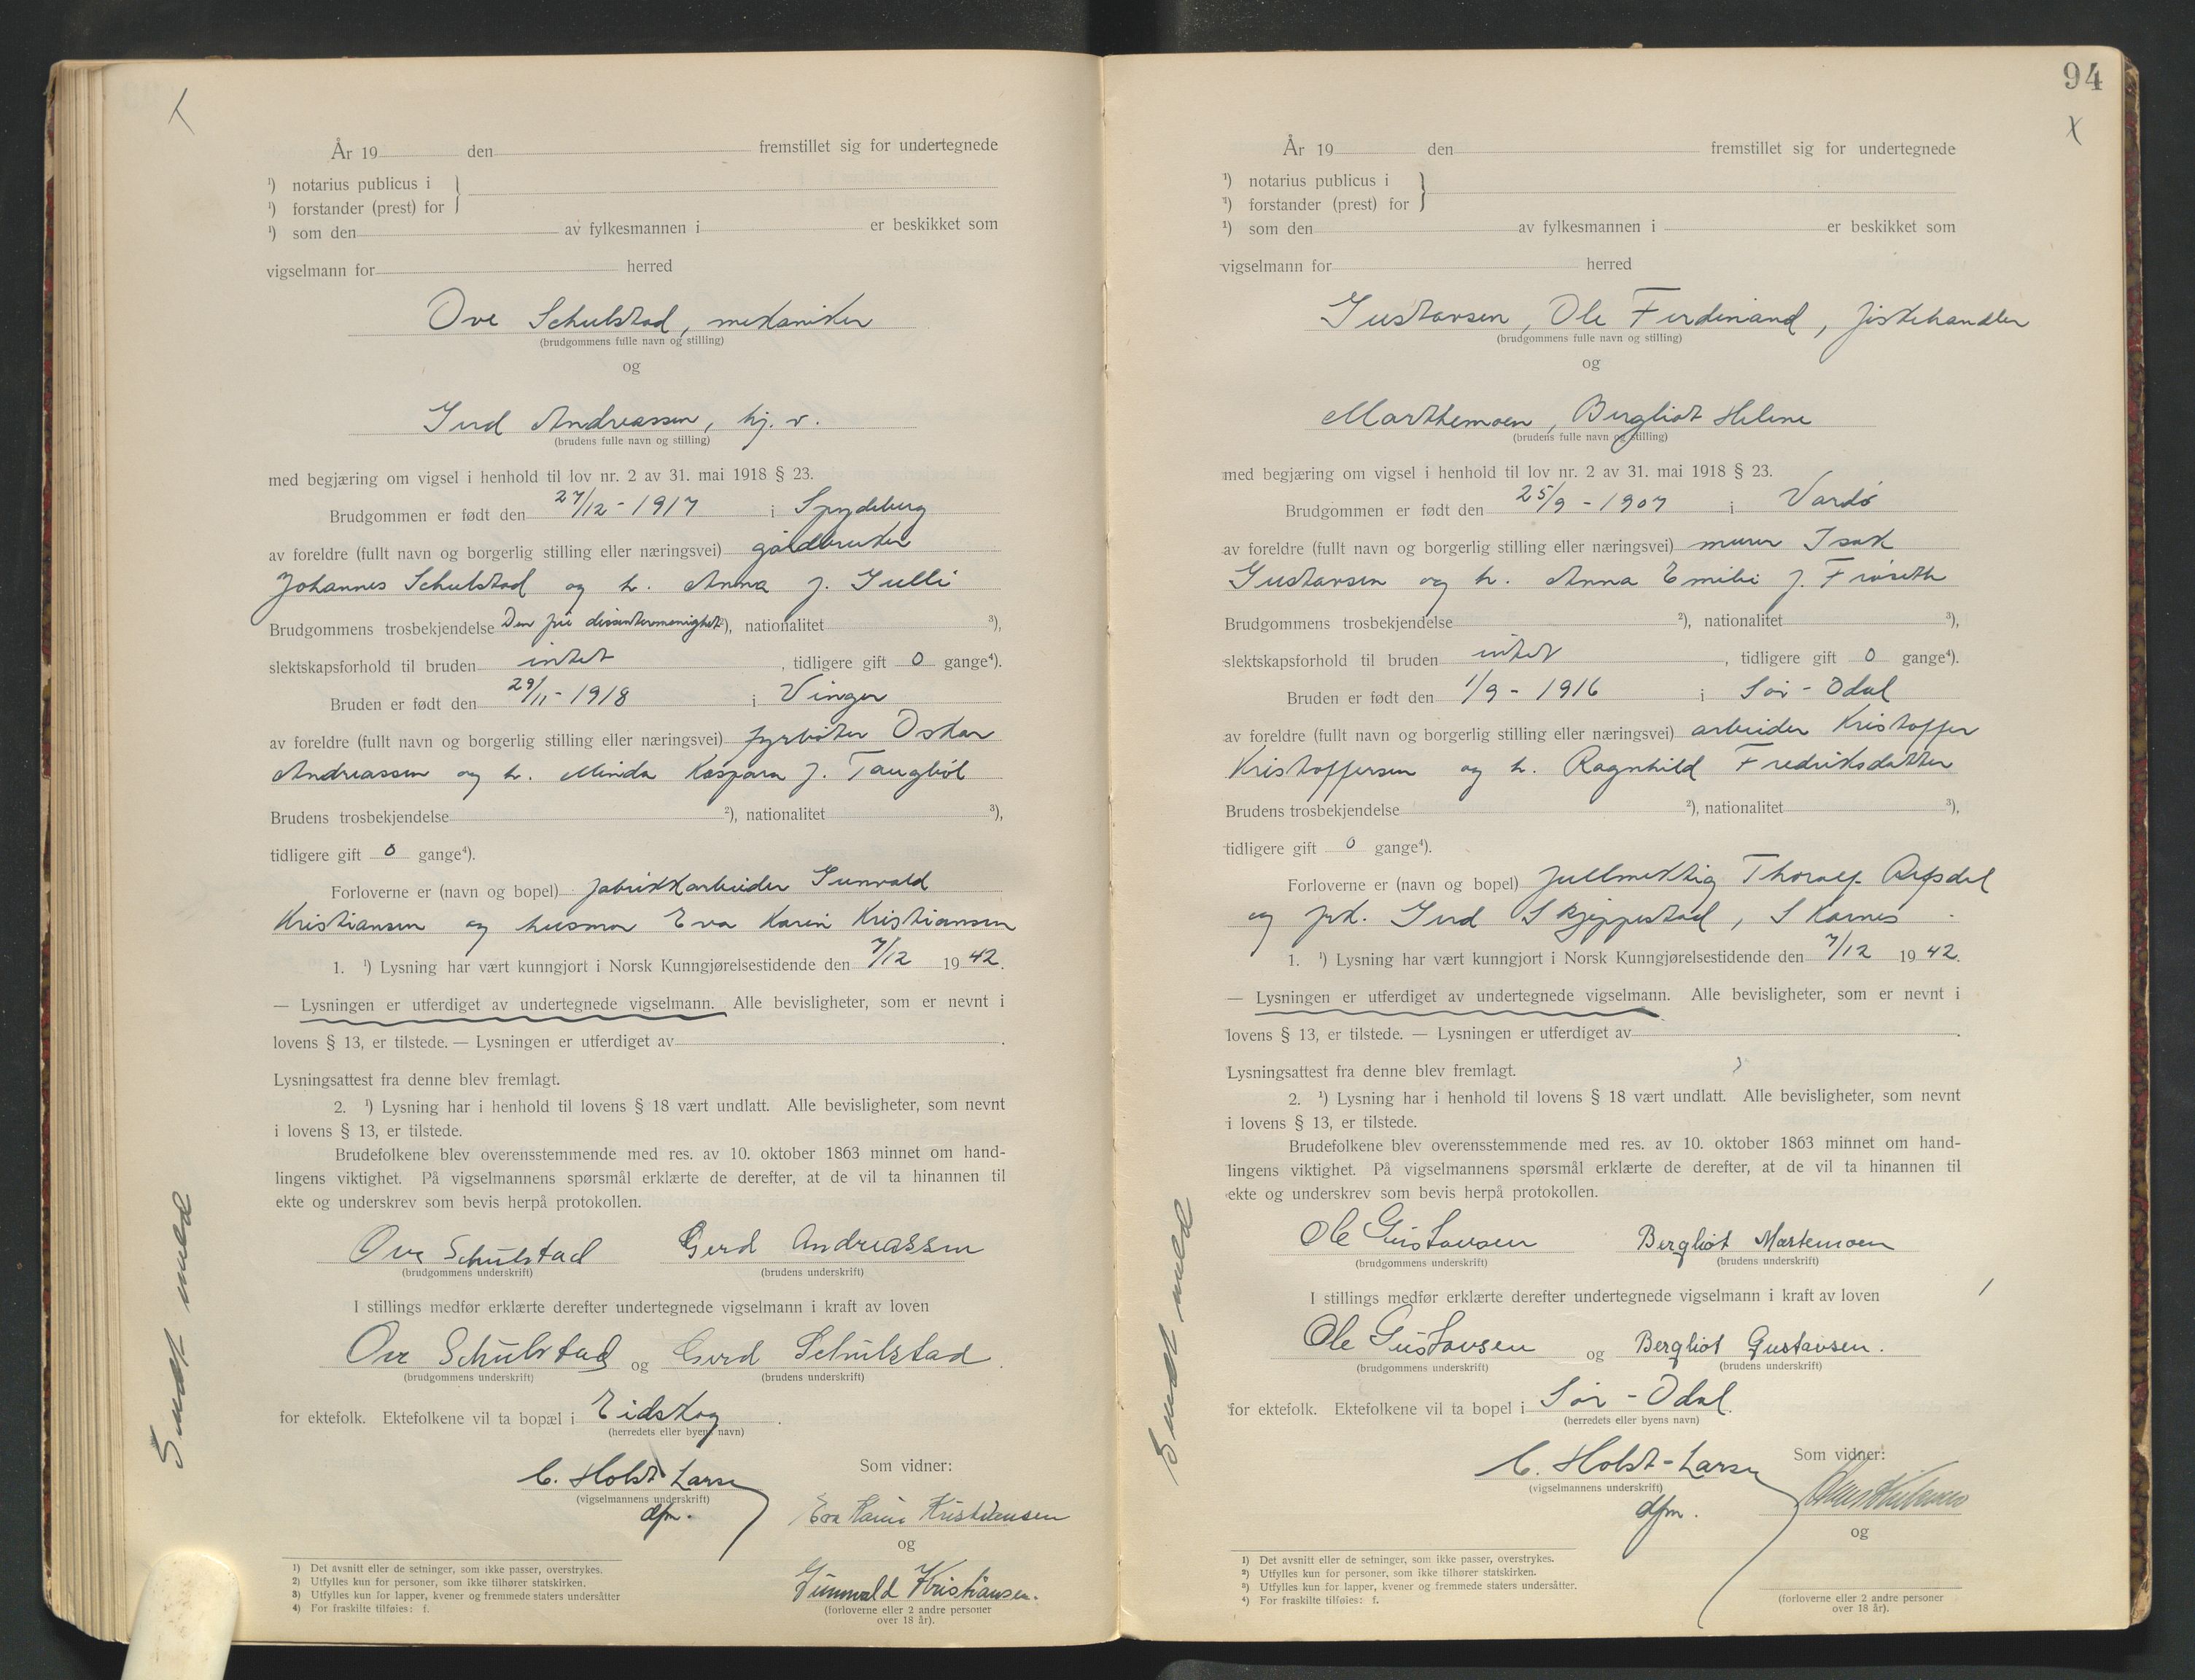 År 19 den fremstillet sig for undertegnede
¹) notarius publicus i
¹) forstander (prest) for
¹) som den av fylkesmannen i er beskikket som
vigselmann for herred
Ove Schulstad, mekaniker
(brudgommens fulle navn og stilling)
og
Gerd Andreassen, hj. v.
(brudens fulle navn og stilling)
med begjæring om vigsel i henhold til lov nr. 2 av 31. mai 1918 § 23.
Brudgommen er født den 27/12 - 1917 i Spydeberg
av foreldre (fullt navn og borgerlig stilling eller næringsvei) gårdbruker
Johannes Schulstad og h. Anna f. Gulli
Brudgommens trosbekjendelse Den fri dissentermenighet ²), nationalitet ³),
slektskapsforhold til bruden intet, tidligere gift 0 gange⁴).
Bruden er født den 29/11 - 1918 i Vinger
av foreldre (fullt navn og borgerlig stilling eller næringsvei) fyrbøter Oskar
Andreassen og h. Minda Kaspara f. Taugbøl
Brudens trosbekjendelse ²), nationalitet ³),
tidligere gift 0 gange⁴).
Forloverne er (navn og bopel) fabrikkarbeider Gunvald
Kristiansen og husmor Eva Karin Kristiansen
1. ¹) Lysning har vært kunngjort i Norsk Kunngjørelsestidende den 7/12 1942.
— Lysningen er utferdiget av undertegnede vigselmann. Alle bevisligheter, som er nevnt i
lovens § 13, er tilstede. — Lysningen er utferdiget av .
Lysningsattest fra denne blev fremlagt.
2. ¹) Lysning har i henhold til lovens § 18 vært undlatt. Alle bevisligheter, som nevnt
i lovens § 13, er tilstede.
Brudefolkene blev overensstemmende med res. av 10. oktober 1863 minnet om hand-
lingens viktighet. På vigselmannens spørsmål erklærte de derefter, at de vil ta hinannen til
ekte og underskrev som bevis herpå protokollen.
Ove Schulstad Gerd Andreassen
(brudgommens underskrift) (brudens underskrift)
I stillings medfør erklærte derefter undertegnede vigselmann i kraft av loven
Ove Schulstad og Gerd Schulstad.
(brudgommens underskrift) (brudens underskrift)
for ektefolk. Ektefolkene vil ta bopæl i Eidskog.
(herredets eller byens navn)
C. Holst-Larsen Som vidner:
(vigselmannens underskrift)
dfm.
Eva Karin Kristiansen
og
Gunnvald Kristiansen.
(forloverne eller 2 andre personer
over 18 år).
1) Det avsnitt eller de setninger, som ikke passer, overstrykes.
2) Utfylles kun for personer, som ikke tilhører statskirken.
3) Utfylles kun for lapper, kvener og fremmede staters undersåtter
4) For fraskilte tilføies: f.
Sendt meld
94
X
År 19 den fremstillet sig for undertegnede
¹) notarius publicus i
¹) forstander (prest) for
¹) som den av fylkesmannen i er beskikket som
vigselmann for herred
Gustavsen, Ole Ferdinand, fiskehandler
(brudgommens fulle navn og stilling)
og
Marthemoen, Bergliot Helene
(brudens fulle navn og stilling)
med begjæring om vigsel i henhold til lov nr. 2 av 31. mai 1918 § 23.
Brudgommen er født den 25/9 - 1907 i Vardø
av foreldre (fullt navn og borgerlig stilling eller næringsvei) murer Isak
Gustavsen og h. Anna Emilie f. Frøseth
Brudgommens trosbekjendelse ²), nationalitet ³),
slektskapsforhold til bruden intet, tidligere gift 0 gange⁴).
Bruden er født den 1/9 - 1916 i Sør-Odal
av foreldre (fullt navn og borgerlig stilling eller næringsvei) arbeider Kristoffer
Kristoffersen og h. Ragnhild Fredriksdatter
Brudens trosbekjendelse ²), nationalitet ³),
tidligere gift 0 gange⁴).
Forloverne er (navn og bopel) fullmektig Thoralf Refsdal
og frk. Gerd Skjeppestad, Skarnes.
1. ¹) Lysning har vært kunngjort i Norsk Kunngjørelsestidende den 7/12 1942.
— Lysningen er utferdiget av undertegnede vigselmann. Alle bevisligheter, som er nevnt i
lovens § 13, er tilstede. — Lysningen er utferdiget av .
Lysningsattest fra denne blev fremlagt.
2. ¹) Lysning har i henhold til lovens § 18 vært undlatt. Alle bevisligheter, som nevnt
i lovens § 13, er tilstede.
Brudefolkene blev overensstemmende med res. av 10. oktober 1863 minnet om hand-
lingens viktighet. På vigselmannens spørsmål erklærte de derefter, at de vil ta hinannen til
ekte og underskrev som bevis herpå protokollen.
Ole Gustavsen Bergliot Martemoen
(brudgommens underskrift) (brudens underskrift)
I stillings medfør erklærte derefter undertegnede vigselmann i kraft av loven
Ole Gustavsen og Bergliot Gustavsen.
(brudgommens underskrift) (brudens underskrift)
for ektefolk. Ektefolkene vil ta bopel i Sør-Odal.
(herredets eller byens navn)
C. Holst-Larsen Som vidner:
(vigselmannens underskrift)
dfm.
og
(forloverne eller 2 andre personer
over 18 år).
1) Det avsnitt eller de setninger, som ikke passer, overstrykes.
2) Utfylles kun for personer, som ikke tilhører statskirken.
3) Utfylles kun for lapper, kvener og fremmede staters undersåtter.
4) For fraskilte tilføies: f.
Sendt meld